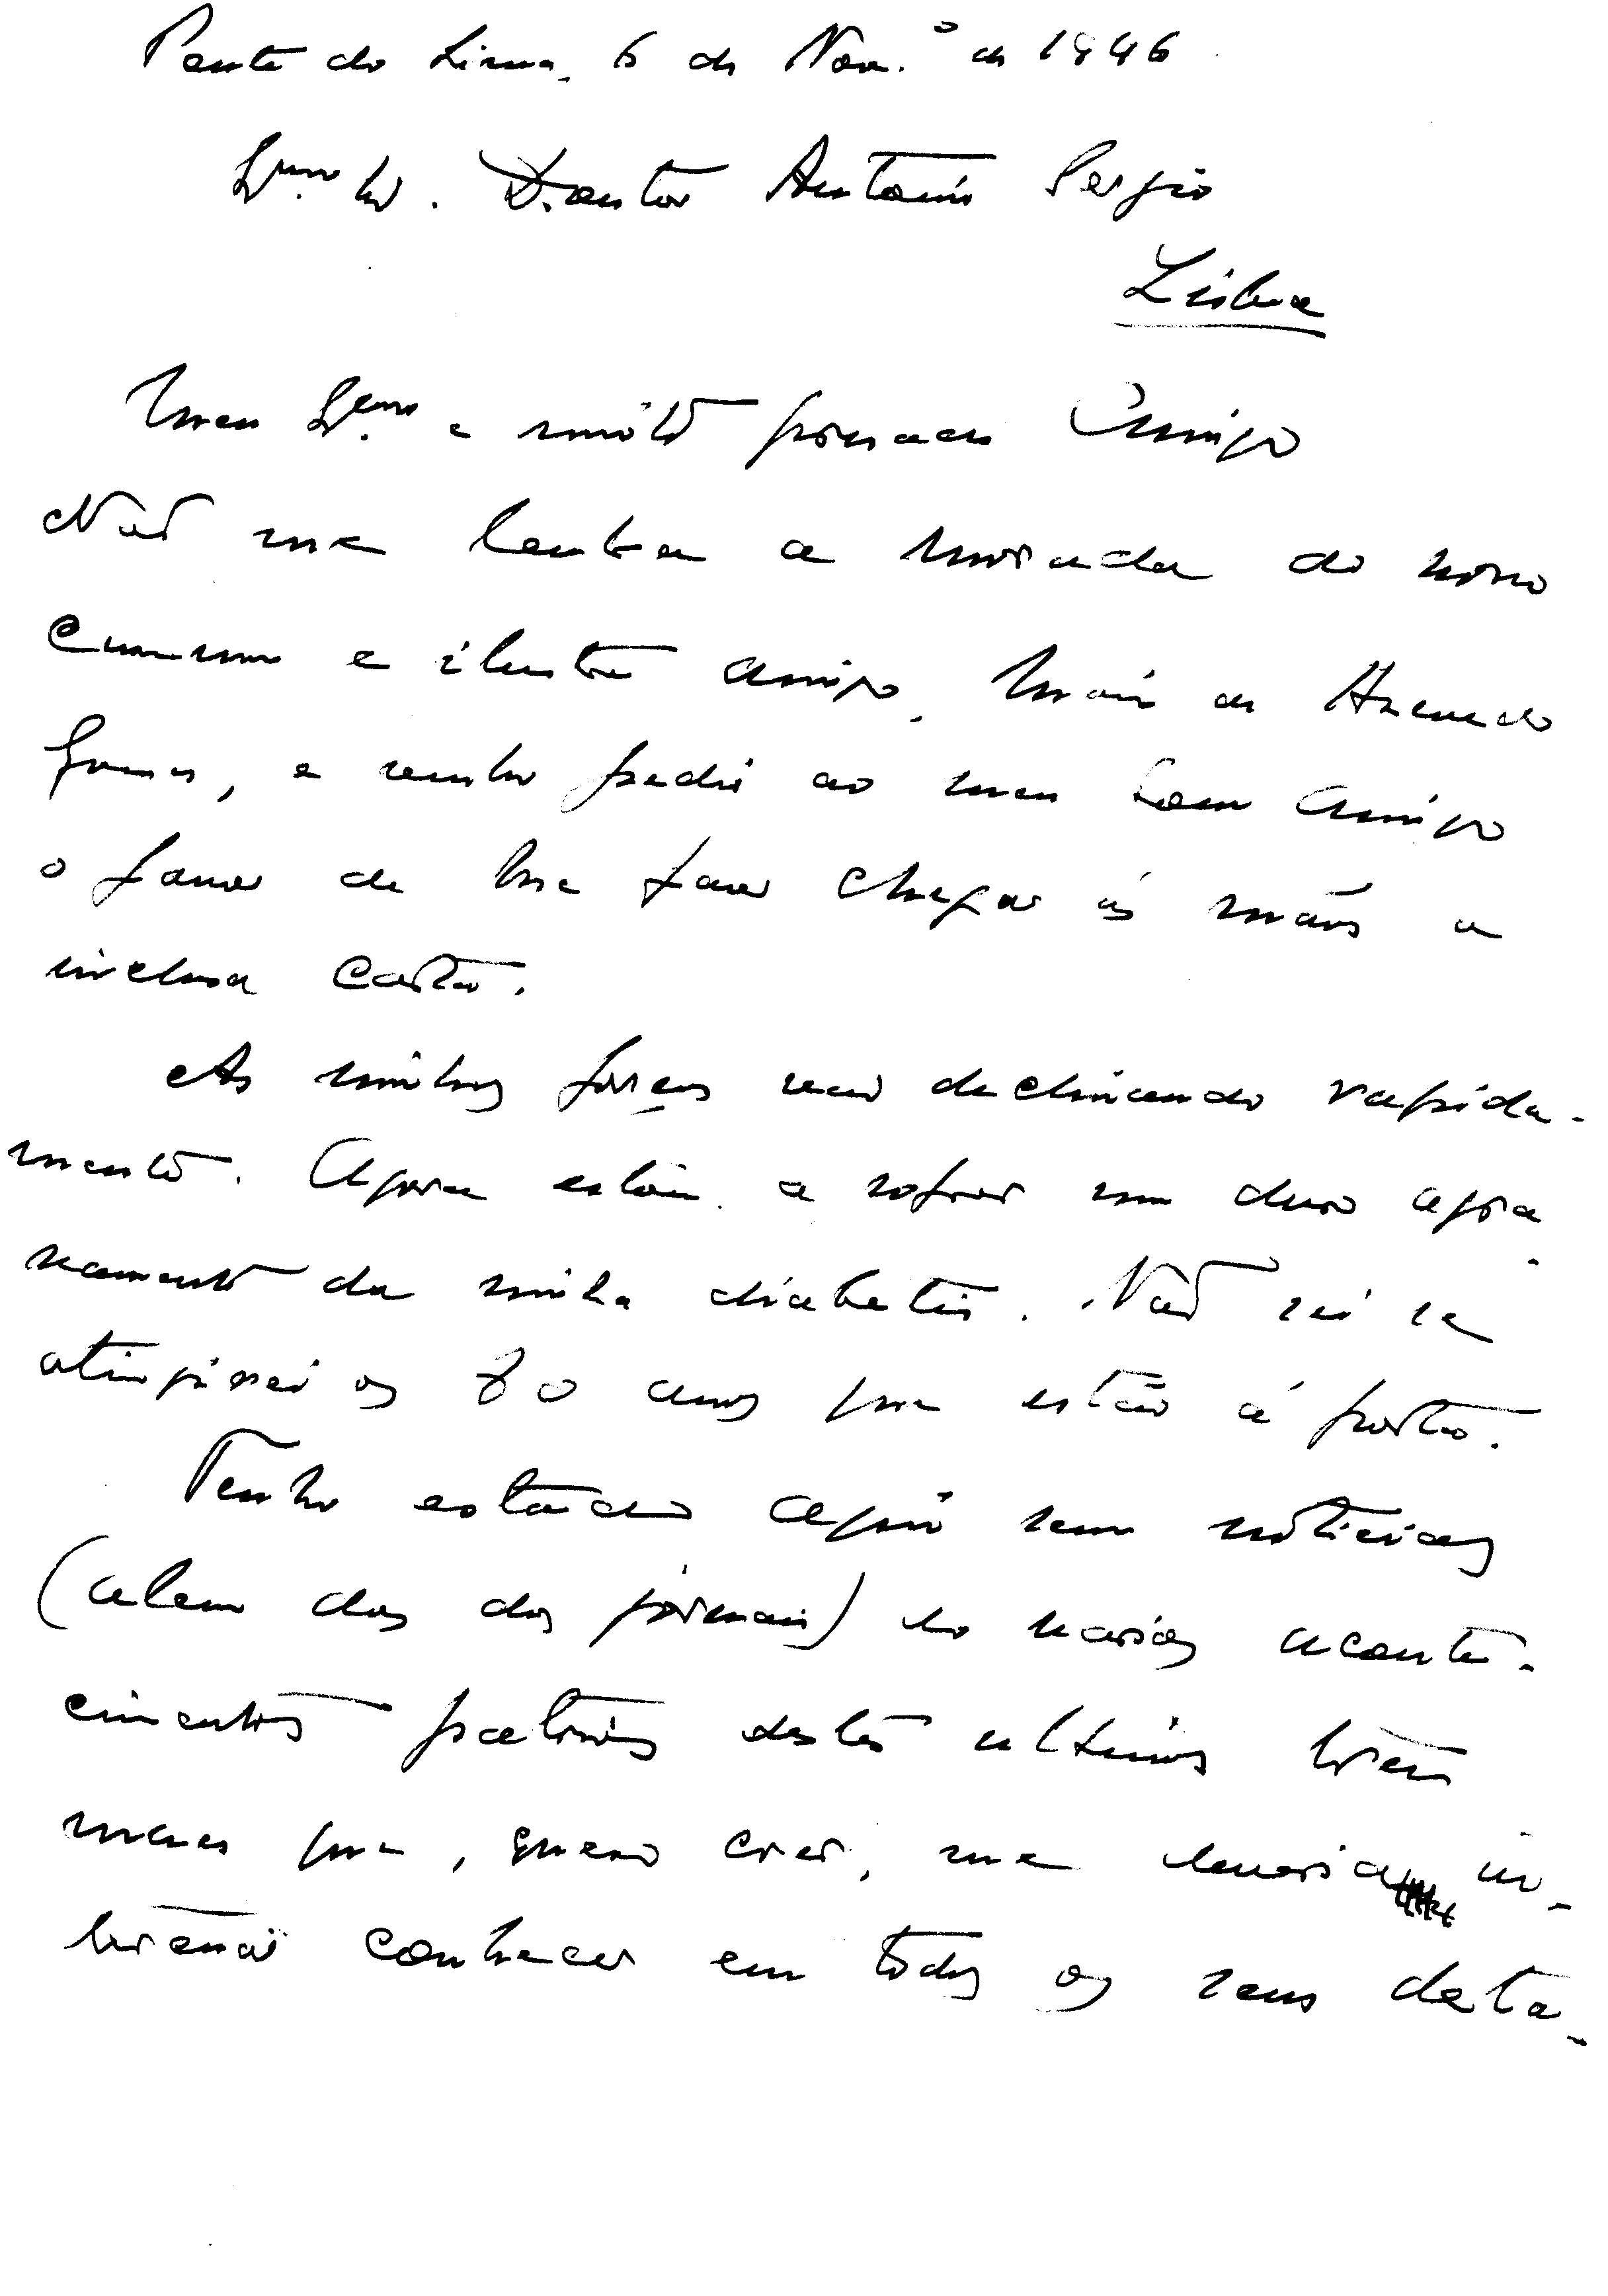 Ponte do Lima, 6 de Nov.º de 1946
Exmo Sr. Doutor Antonio Sergio
Lisboa
Meu Exmo e muito prezado Amigo
Não me lembra a morada do nosso
comum e ilustre amigo, Mario de Azevedo
Gomes, e venho pedir ao meu bom Amigo
o favor de lhe fazer chegar ás mãos a
inclusa carta.
As minhas forças vão declinando rapida-
mente. Agora estou a sofrer um duro agra-
vamento da minha diabetis. Não sei se
atingirei os 80 anos que estão á porta.
Tenho estado aqui sem noticias
(alem das dos jornais) de varios aconte-
cimentos patrios destes ultimos tres
meses que, quero crer, me deveria in-
teressar conhecer em todos os seus deta-